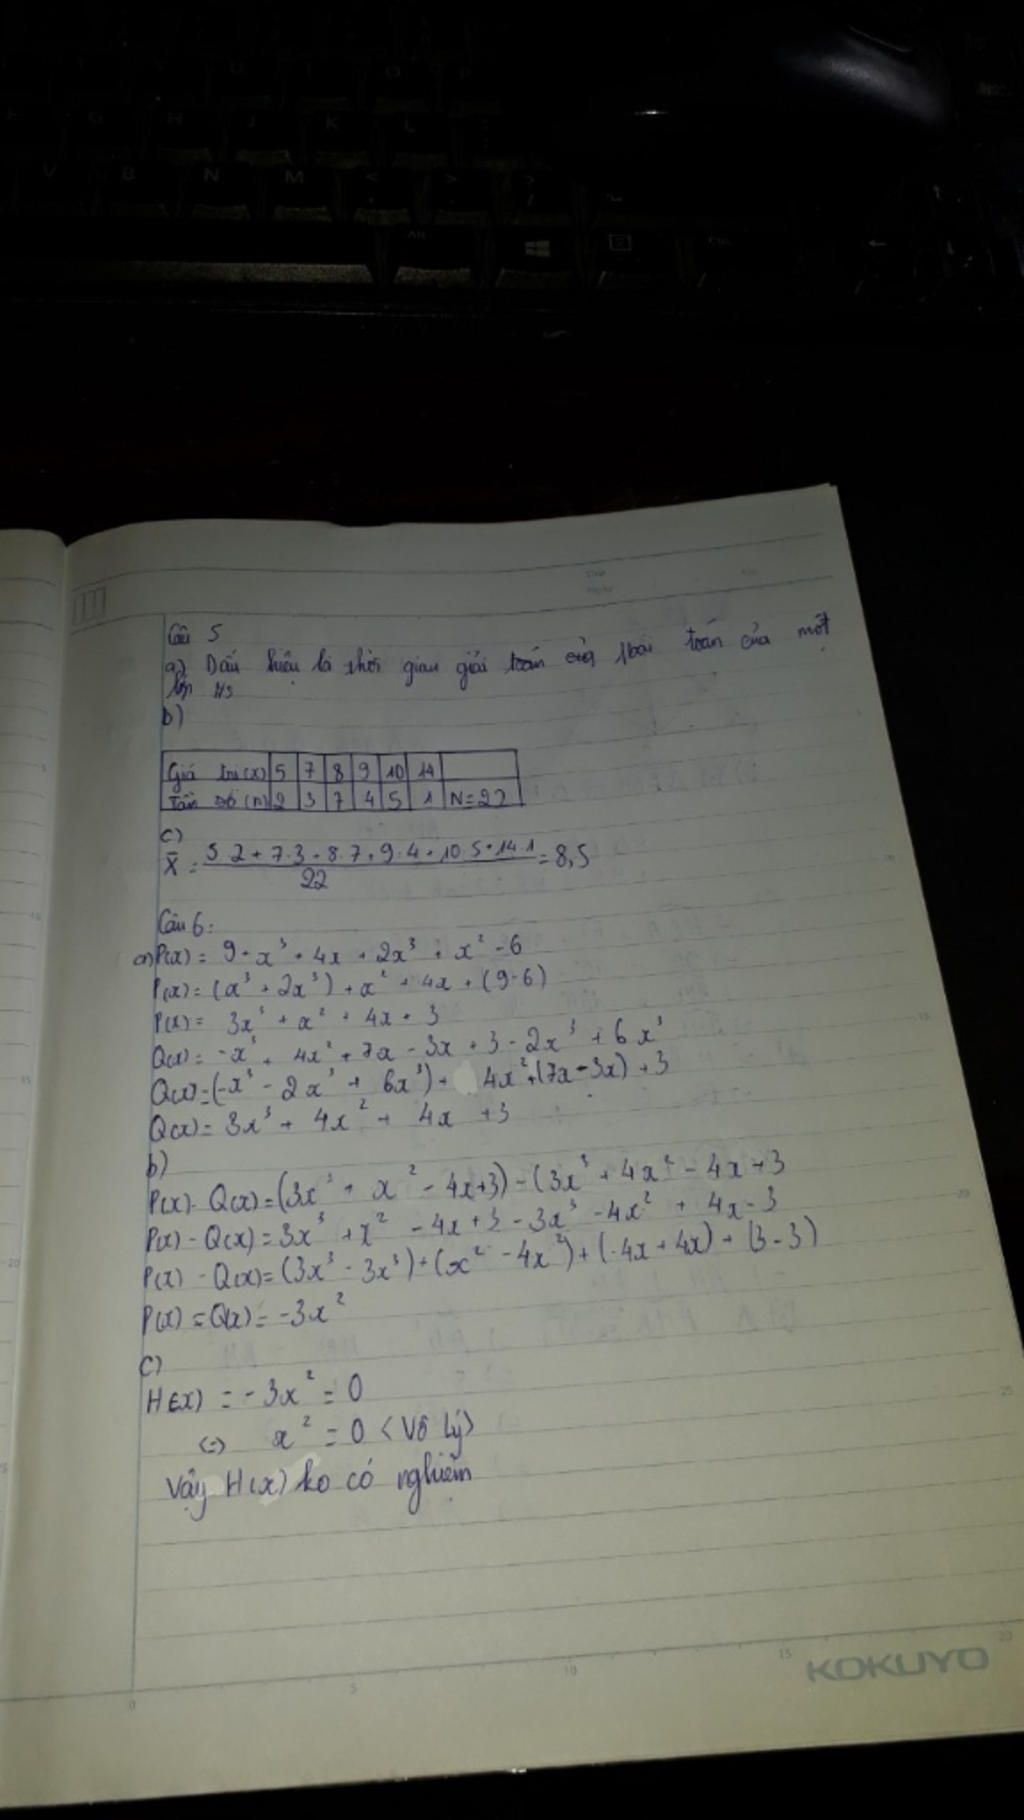 Câu 5
a) Dấu hiệu là thời gian giải toán của 1 bài toán của một
lớp HS
b)
Giá trị (x) 5 7 8 9 10 14
Tần số (n) 2 3 7 4 5 1 N=22
c)
X̄ = 5·2+7·3+8·7+9·4+10·5+14·1 = 8,5
22
Câu 6:
a) P(x) = 9 - x³ + 4x + 2x³ + x² - 6
P(x) = (x³ + 2x³) + x² + 4x + (9-6)
P(x) = 3x³ + x² + 4x + 3
Q(x) = -x³ + 4x² + 7x - 3x + 3 - 2x³ + 6x³
Q(x) = (-x³ - 2x³ + 6x³) + 4x² + (7x - 3x) + 3
Q(x) = 3x³ + 4x² + 4x + 3
b)
P(x) - Q(x) = (3x³ + x² - 4x + 3) - (3x³ + 4x² - 4x + 3
P(x) - Q(x) = 3x³ + x² - 4x + 3 - 3x³ - 4x² + 4x - 3
P(x) - Q(x) = (3x³ - 3x³) + (x² - 4x²) + (-4x + 4x) + (3-3)
P(x) = Q(x) = -3x²
c)
H(x) = -3x² = 0
(=) x² = 0 <Vô lý>
Vậy H(x) ko có nghiệm
KOKUYO